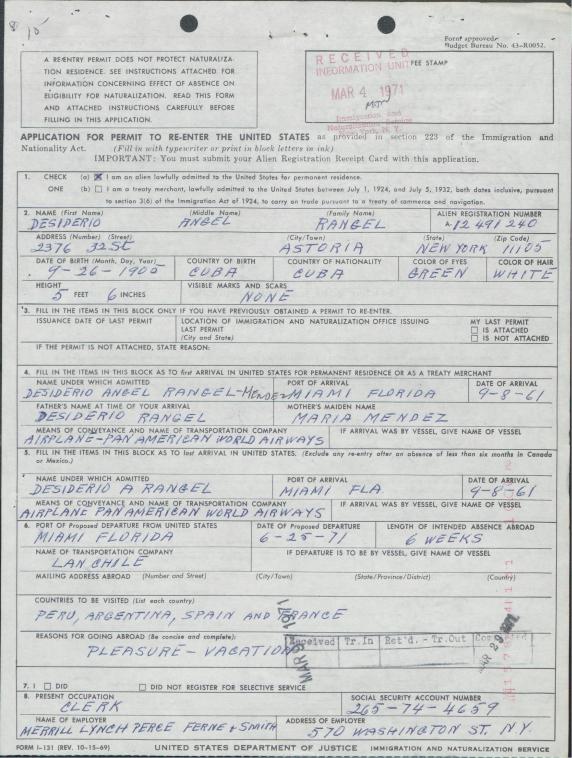 8 10
Form approved.
Budget Bureau No. 43-R0052.
A RE-ENTRY PERMIT DOES NOT PROTECT NATURALIZA-
TION RESIDENCE. SEE INSTRUCTIONS ATTACHED FOR
INFORMATION CONCERNING EFFECT OF ABSENCE ON
ELIGIBILITY FOR NATURALIZATION. READ THIS FORM
AND ATTACHED INSTRUCTIONS CAREFULLY BEFORE
FILLING IN THIS APPLICATION.
RECEIVED
INFORMATION UNIT
FEE STAMP
MAR 4 1971
Immigration and
Naturalization Service
York, N. Y.
APPLICATION FOR PERMIT TO RE-ENTER THE UNITED STATES as provided in section 223 of the Immigration and
Nationality Act. (Fill in with typewriter or print in block letters in ink)
IMPORTANT: You must submit your Alien Registration Receipt Card with this application.
1. CHECK (a) I am an alien lawfully admitted to the United States for permanent residence.
ONE (b) I am a treaty merchant, lawfully admitted to the United States between July 1, 1924, and July 5, 1932, both dates inclusive, pursuant
to section 3(6) of the Immigration Act of 1924, to carry on trade pursuant to a treaty of commerce and navigation.
2. NAME (First Name) (Middle Name) (Family Name) ALIEN REGISTRATION NUMBER
DESIDERIO ANGEL RANGEL A-12 491 240
ADDRESS (Number) (Street) (City/Town) (State) (Zip Code)
2376 32 St ASTORIA NEW YORK 11105
DATE OF BIRTH (Month, Day, Year) COUNTRY OF BIRTH COUNTRY OF NATIONALITY COLOR OF EYES COLOR OF HAIR
9-26-1905 CUBA CUBA GREEN WHITE
HEIGHT VISIBLE MARKS AND SCARS
5 FEET 6 INCHES NONE
3. FILL IN THE ITEMS IN THIS BLOCK ONLY IF YOU HAVE PREVIOUSLY OBTAINED A PERMIT TO RE-ENTER.
ISSUANCE DATE OF LAST PERMIT LOCATION OF IMMIGRATION AND NATURALIZATION OFFICE ISSUING MY LAST PERMIT
LAST PERMIT IS ATTACHED
(City and State) IS NOT ATTACHED
IF THE PERMIT IS NOT ATTACHED, STATE REASON:
4. FILL IN THE ITEMS IN THIS BLOCK AS TO first ARRIVAL IN UNITED STATES FOR PERMANENT RESIDENCE OR AS A TREATY MERCHANT
NAME UNDER WHICH ADMITTED PORT OF ARRIVAL DATE OF ARRIVAL
DESIDERIO ANGEL RANGEL-MENDEZ MIAMI FLORIDA 9-8-61
FATHER'S NAME AT TIME OF YOUR ARRIVAL MOTHER'S MAIDEN NAME
DESIDERIO RANGEL MARIA MENDEZ
MEANS OF CONVEYANCE AND NAME OF TRANSPORTATION COMPANY IF ARRIVAL WAS BY VESSEL, GIVE NAME OF VESSEL
AIRPLANE-PAN AMERICAN WORLD AIRWAYS
5. FILL IN THE ITEMS IN THIS BLOCK AS TO last ARRIVAL IN UNITED STATES. (Exclude any re-entry after an absence of less than six months in Canada
or Mexico.)
NAME UNDER WHICH ADMITTED PORT OF ARRIVAL DATE OF ARRIVAL
DESIDERIO A RANGEL MIAMI FLA. 9-8-61
MEANS OF CONVEYANCE AND NAME OF TRANSPORTATION COMPANY IF ARRIVAL WAS BY VESSEL, GIVE NAME OF VESSEL
AIRPLANE PAN AMERICAN WORLD AIRWAYS
6. PORT OF Proposed DEPARTURE FROM UNITED STATES DATE OF Proposed DEPARTURE LENGTH OF INTENDED ABSENCE ABROAD
MIAMI FLORIDA 6-25-71 6 WEEKS
NAME OF TRANSPORTATION COMPANY IF DEPARTURE IS TO BE BY VESSEL, GIVE NAME OF VESSEL
LAN CHILE
MAILING ADDRESS ABROAD (Number and Street) (City/Town) (State/Province/District) (Country)
COUNTRIES TO BE VISITED (List each country)
PERU, ARGENTINA, SPAIN AND FRANCE
REASONS FOR GOING ABROAD (Be concise and complete):
PLEASURE - VACATION
Received Tr. In Ret'd. - Tr. Out
MAR 29
7. I DID DID NOT REGISTER FOR SELECTIVE SERVICE
8. PRESENT OCCUPATION SOCIAL SECURITY ACCOUNT NUMBER
CLERK 265-74-4659
NAME OF EMPLOYER ADDRESS OF EMPLOYER
MERRILL LYNCH PERCE FERNE & SMITH 570 WASHINGTON ST. N.Y.
FORM I-131 (REV. 10-15-69) UNITED STATES DEPARTMENT OF JUSTICE IMMIGRATION AND NATURALIZATION SERVICE